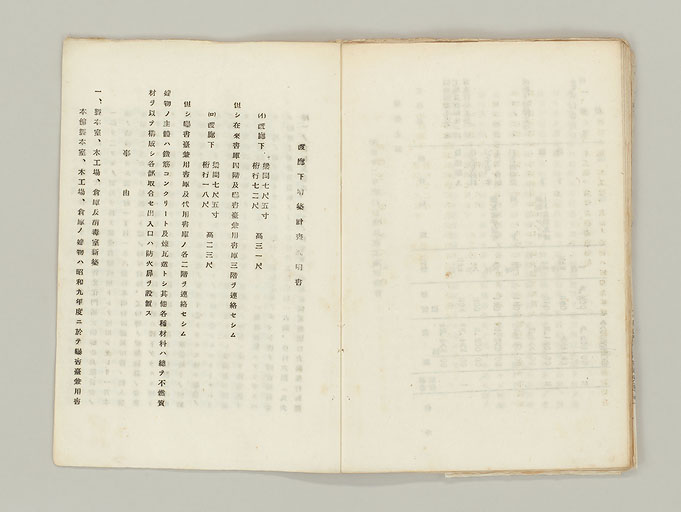 渡廊下増築計画説明書
(イ)渡廊下 梁間七尺五寸 高三一尺
桁行七二尺
但シ在来書庫四階及曝書臺兼用書庫三階ヲ連絡セシム
(ロ)渡廊下 梁間七尺五寸 高二三尺
桁行一八尺
但シ曝書臺兼用書庫及代用書庫ノ各二階ヲ連絡セシム
建物ノ主体ハ鐵筋コンクリート及煉瓦造トシ其他各種材料ハ總テ不燃質
材ヲ以テ構成シ各部取合セ出入口ハ防火扉ヲ設置ス
事由
一、製本室、木工場、倉庫及消毒室新築
本館製本室、木工場、倉庫ノ建物ハ昭和九年度ニ於テ曝書臺兼用書